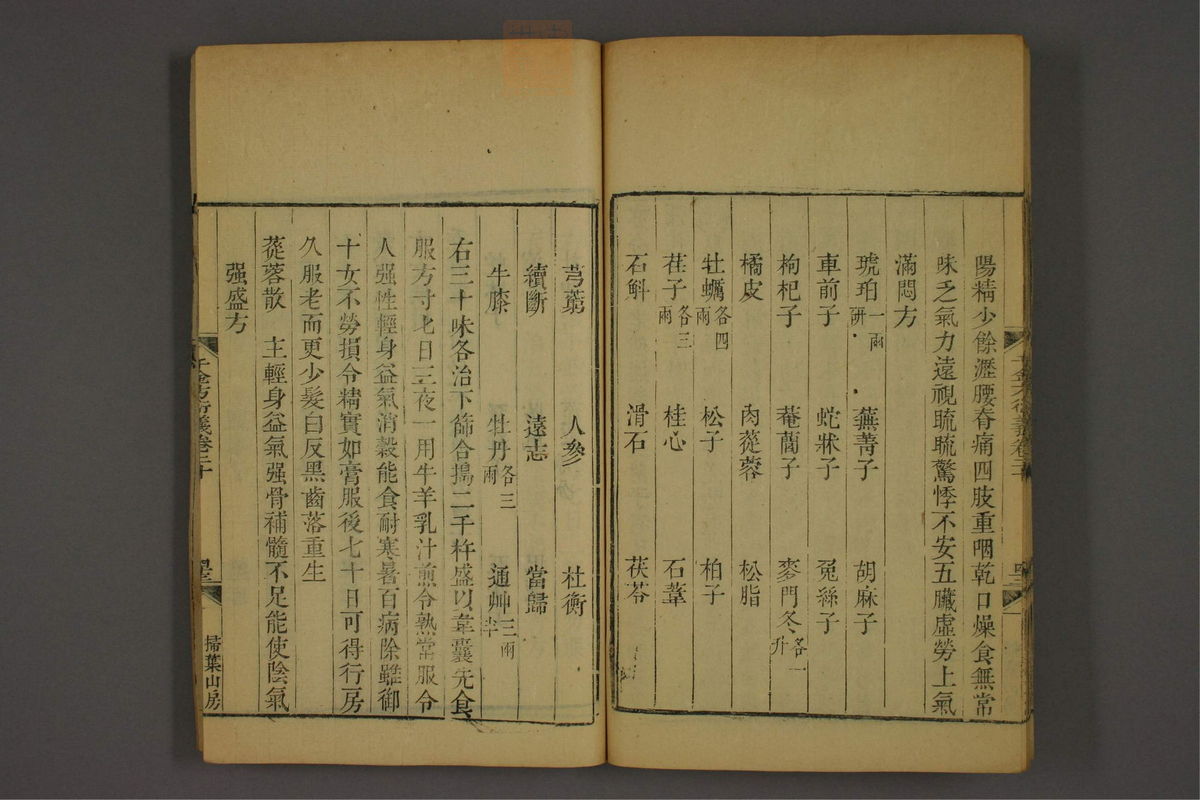 陽精少餘瀝腰脊痛四肢重咽乾口燥食無常
味乏氣力遠視䀮䀮驚悸不安五臟虛勞上氣
滿悶方
琥珀一兩研 蕪菁子 胡麻子
車前子 蛇牀子 兔絲子
枸杞子 菴䕡子 麥門冬各一升
橘皮 肉蓯蓉 松脂
牡蠣各四兩 松子 柏子
荏子各三兩 桂心 石葦
石斛 滑石 茯苓
千金方衍義卷二十
芎藭 人參 杜衡
續斷 遠志 當歸
牛膝 牡丹各三兩 通艸三兩半
右三十味各治下篩合搗二千杵盛以韋囊先食
服方寸匕日三夜一用牛羊乳汁煎令熟常服令
人强性輕身益氣消穀能食耐寒暑百病除雖御
十女不勞損令精實如膏服後七十日可得行房
久服老而更少髮白反黑齒落重生
蓯蓉散 主輕身益氣强骨補髓不足能使陰氣
强盛方
千金方衍義卷二十
掃葉山房